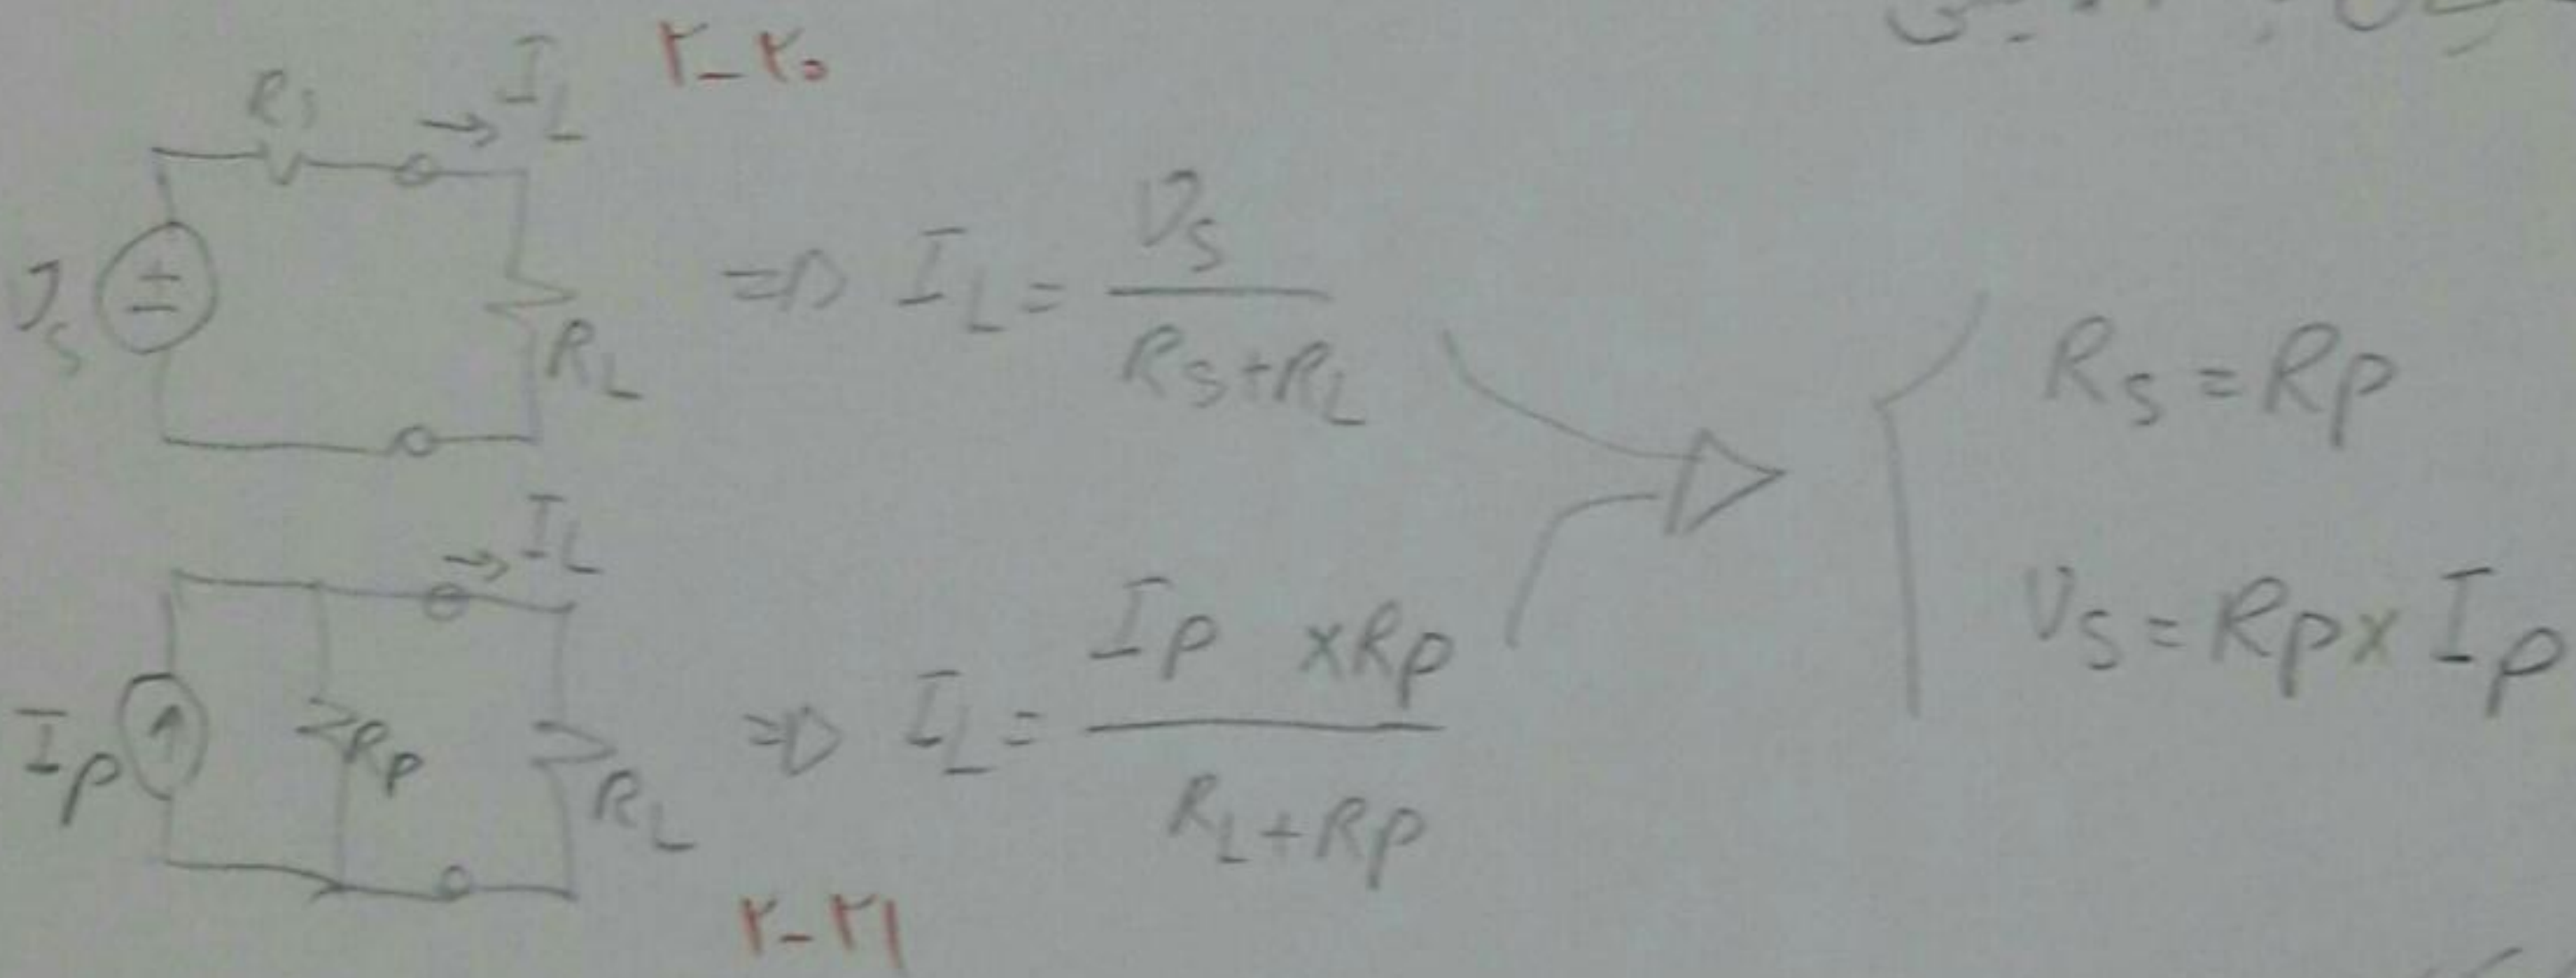 ۲-۲۰
R_s → I_L
V_s ± R_L
=> I_L = V_s / (R_s + R_L)
→ I_L
I_P ↑ R_P R_L
=> I_L = (I_P × R_P) / (R_L + R_P)
۲-۲۱
R_s = R_P
V_s = R_P × I_P